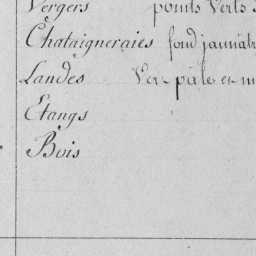 Vergers points Verts
Chataigneraies fond jaunâtr
Landes Ver pâle et m
Etangs
Bois